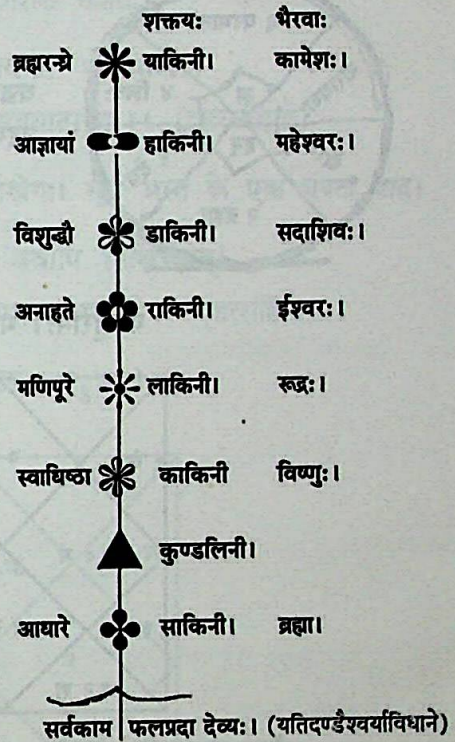 शक्तयः भैरवाः
ब्रह्मरन्ध्रे याकिनी। कामेशः।
आज्ञायां हाकिनी। महेश्वरः।
विशुद्धौ डाकिनी। सदाशिवः।
अनाहते राकिनी। ईश्वरः।
मणिपूरे लाकिनी। रूद्रः।
स्वाधिष्ठा काकिनी विष्णुः।
कुण्डलिनी।
आधारे साकिनी। ब्रह्मा।
सर्वकाम फलप्रदा देव्यः। (यतिदण्डैश्वर्याविधाने)